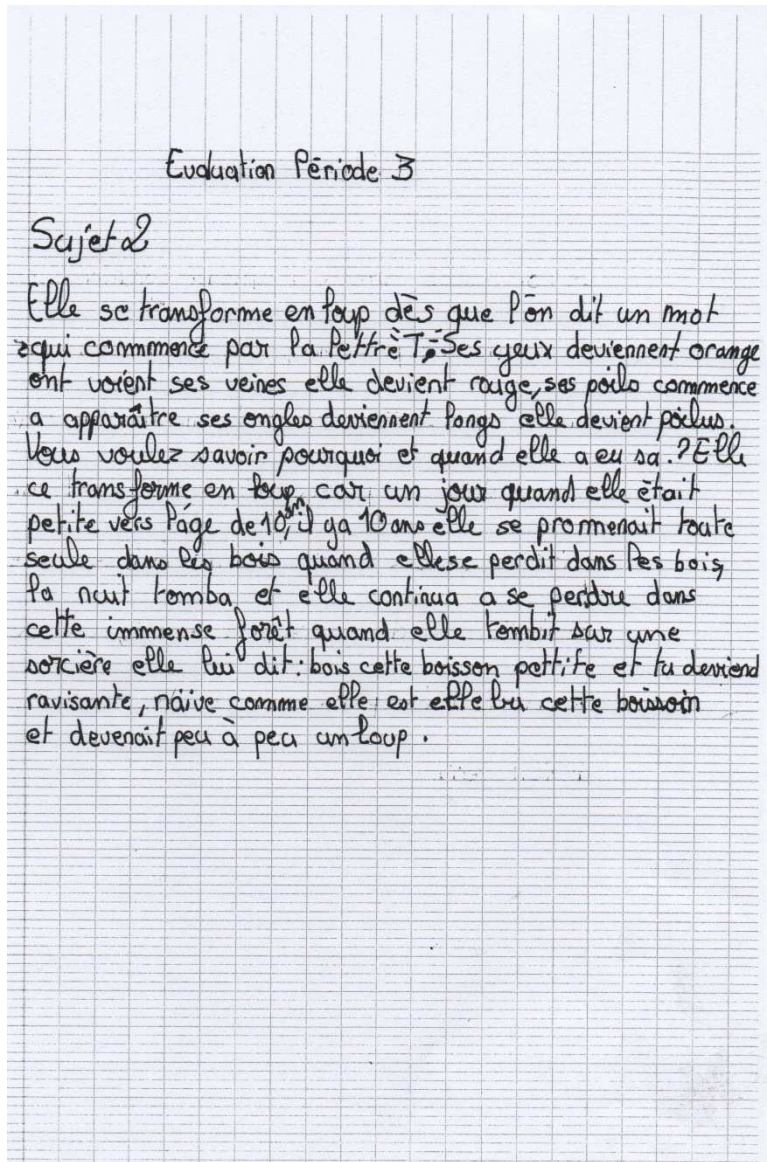 Evaluation Période 3
Sujet 2
Elle se transforme en loup dès que l'on dit un mot
qui commmence par la lettre "T". Ses yeux deviennent orange
ont voient ses veines elle devient rouge, ses poils commence
a apparaître ses ongles deviennent longs elle devient poilus.
Vous voulez savoir pourquoi et quand elle a eu sa.? Elle
ce transforme en loup car un jour quand elle était
petite vers l'âge de 10 ans, il y a 10 ans elle se promenait toute
seule dans les bois quand elle se perdit dans les bois,
la nuit tomba et elle continua a se perdre dans
cette immense forêt quand elle tombit sur une
sorcière elle lui dit : bois cette boisson pettite et tu deviend
ravisante, naïve comme elle est elle bu cette boissoin
et devenait peu à peu un loup.